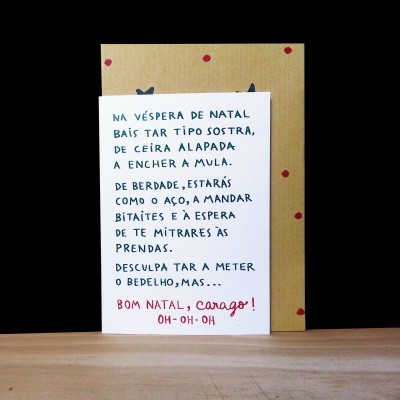 NA VÉSPERA DE NATAL
BAIS TAR TIPO SOSTRA,
DE CEIRA ALAPADA
A ENCHER A MULA.
DE BERDADE, ESTARÁS
COMO O AÇO, A MANDAR
BITAITES E À ESPERA
DE TE MITRARES ÀS
PRENDAS.
DESCULPA TAR A METER
O BEDELHO, MAS...
BOM NATAL, carago!
OH-OH-OH